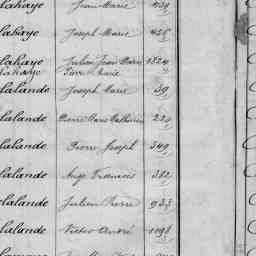 Lahaye Jean Marie 429
Lahaye Joseph Marie 425
Lahaye Julien Jean Marie 1824
Lahaye Pierre Marie
Lalande Joseph Marie 39
Lalande Pierre Marie Mathurin 229
Lalande Pierre Joseph 349
Lalande Ange Francois 382
Lalande Julien Pierre 933
Lalande Victor André 1098